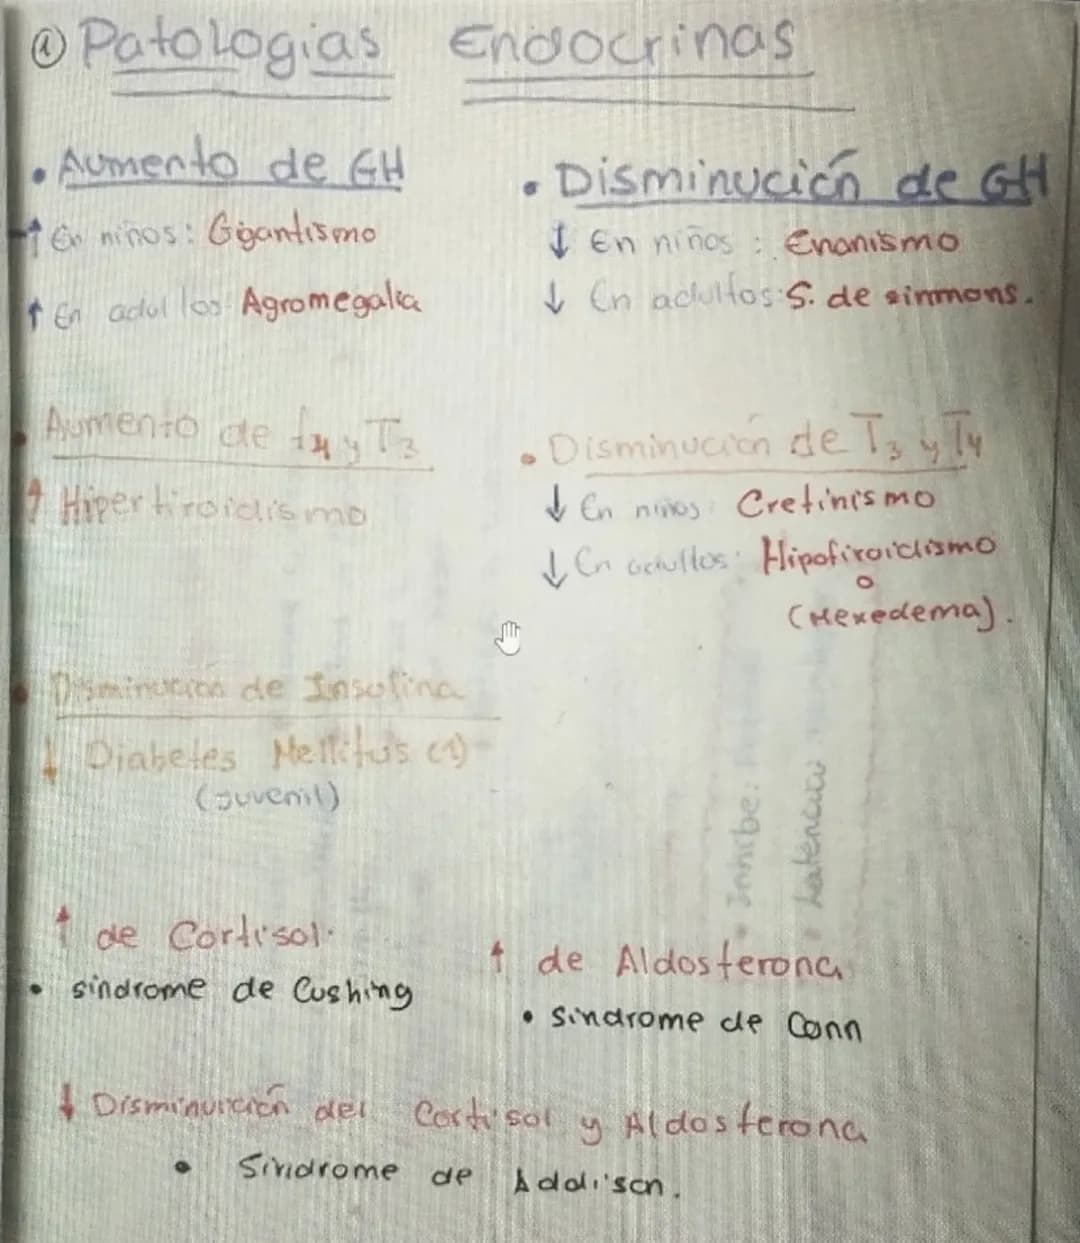 ① Patologias Endocrinas
• Aumento de GH
↑ En niños: Gigantismo
↑ En adultos: Agromegalia
• Disminución de GH
↓ En niños: Enanismo
↓ En adultos: S. de sinmons.
• Aumento de t4 y T3
↑ Hipertiroidismo
• Disminución de T3 y T4
↓ En niños: Cretinismo
↓ En adultos: Hipotiroidismo
o
(Mexedema).
• Disminución de Insulina
↓ Diabetes Mellitus (1)
(Juvenil)
• Inhibe:
• Latencia
↑ de Cortisol.
• sindrome de Cushing
↑ de Aldosterona
• sindrome de Conn
↓ Disminución del Cortisol y Aldosterona
• Sindrome de Addison.